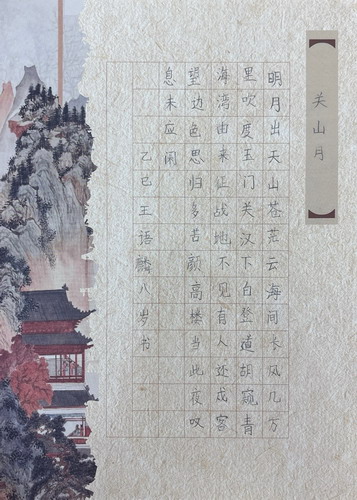 关山月
明月出天山苍茫云海间长风几万
里吹度玉门关汉下白登道胡窥青
海湾由来征战地不见有人还戍客
望边色思归多苦颜高楼当此夜叹
息未应闲
乙巳王语麟八岁书